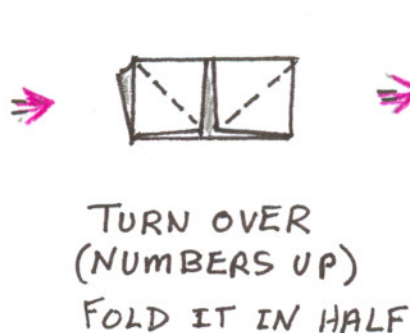 TURN OVER
(NUMBERS UP)
FOLD IT IN HALF